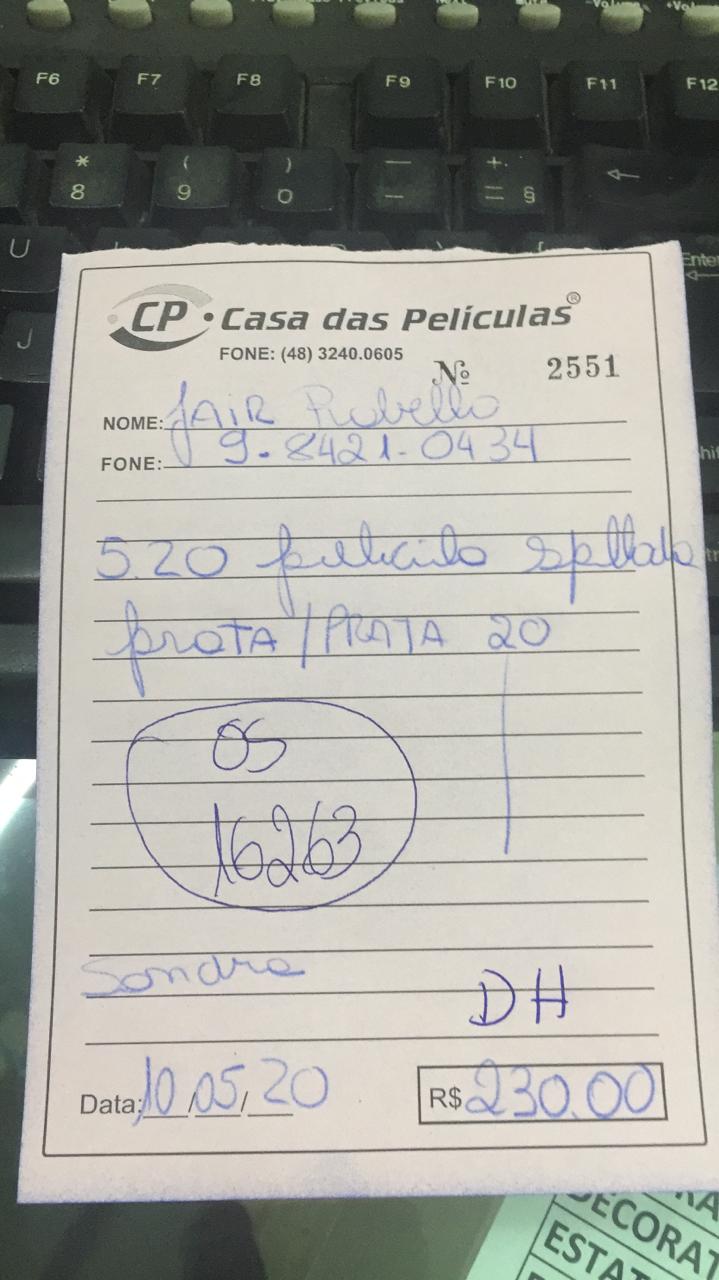 F6 F7 F8 F9 F10 F11 F12
* ( ) — +
8 9 0 – = § ←
U
J
Enter
CP · Casa das Películas®
FONE: (48) 3240.0605
Nº 2551
NOME: JAIR Rabello
FONE: 9-8421-0434
5.20 pelicula
prata / PRATA 20
OS
16263
Sandra
DH
Data: 10/05/20
R$ 230.00
DECORAT
ESTAT